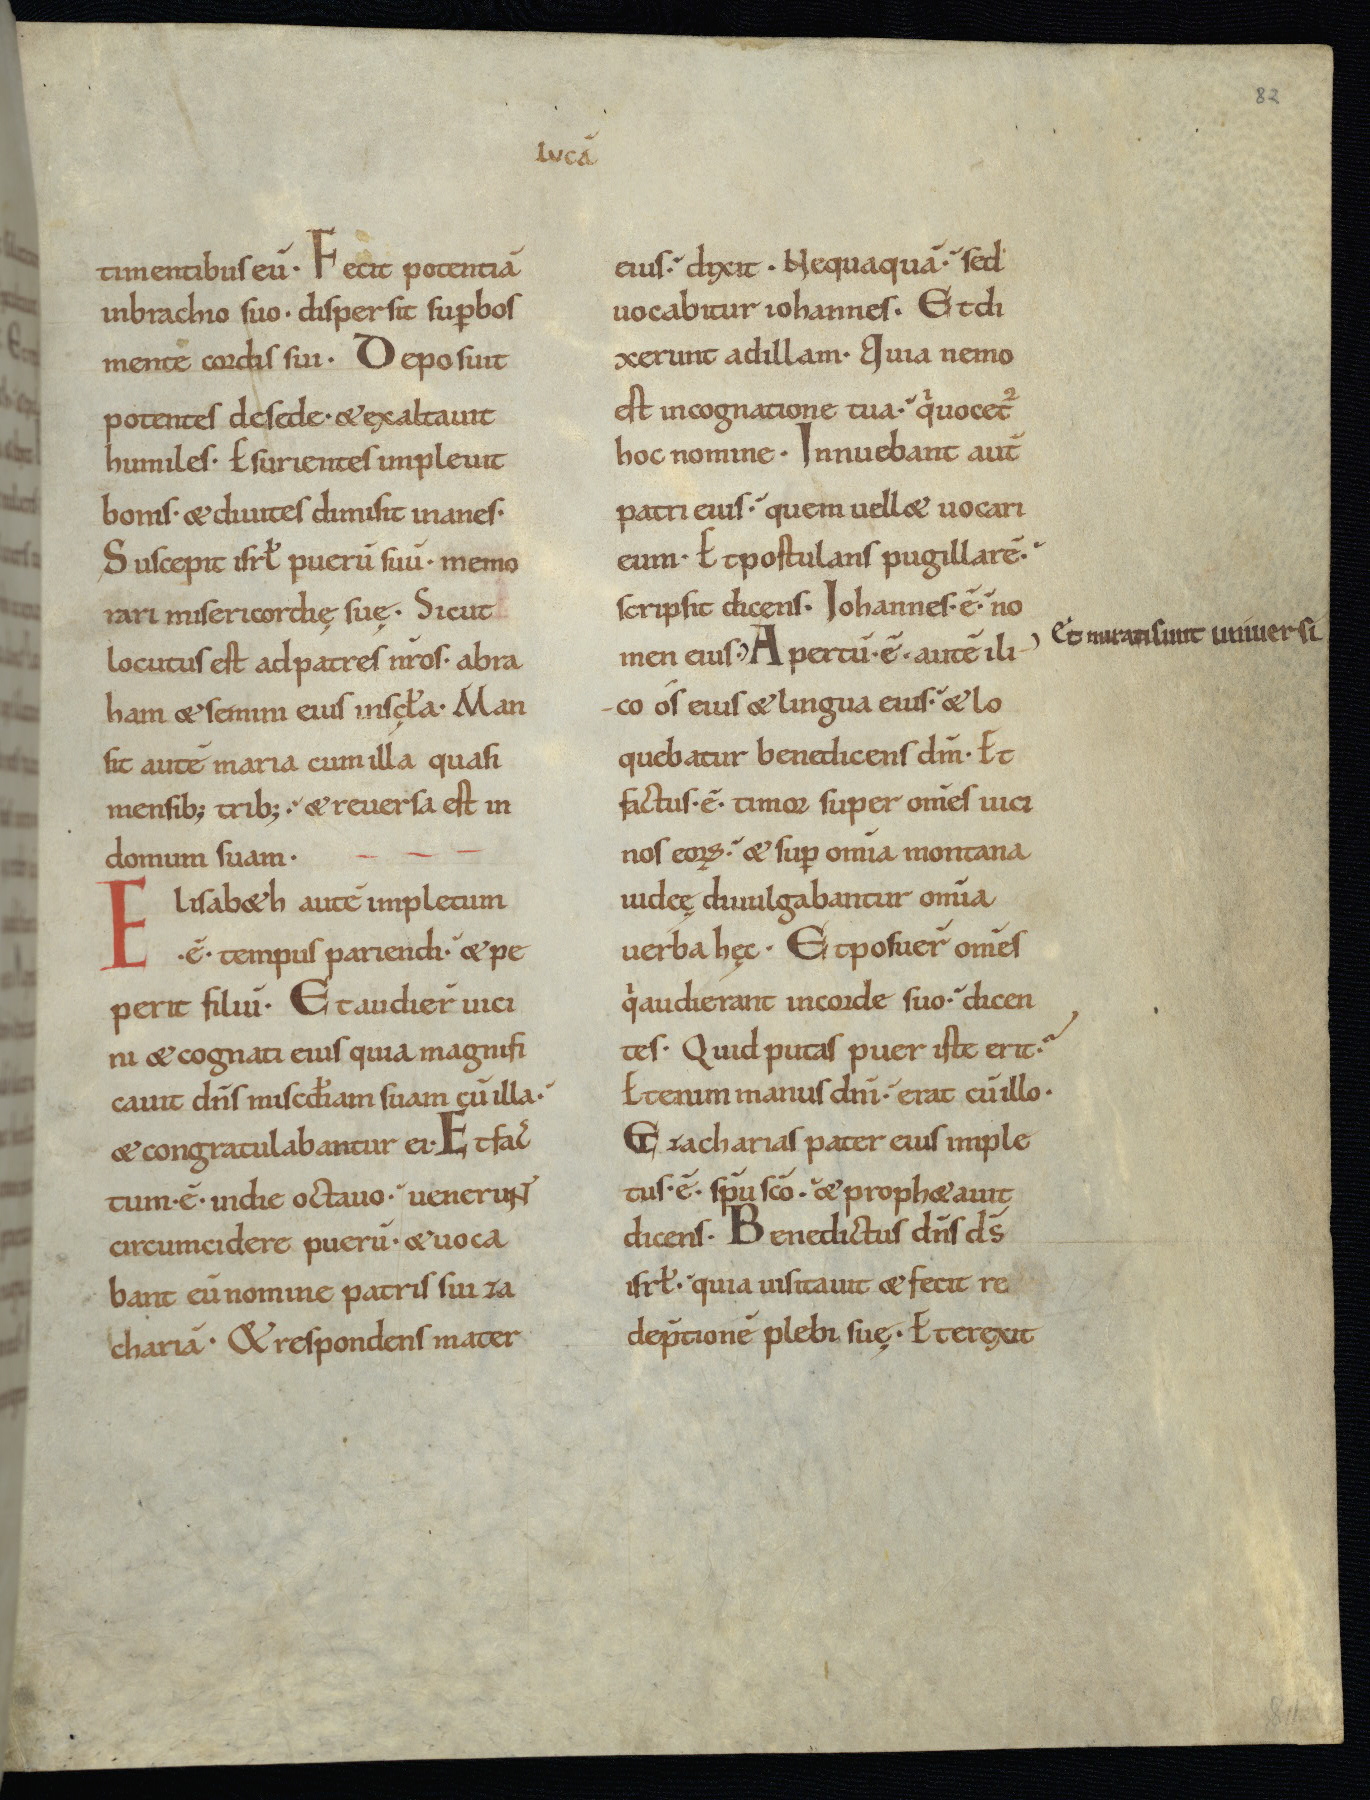 82
lucā
timentibus eū· Fecit potentiā
inbrachio suo· dispersit sup̄bos
mente cordis sui· Deposuit
potentes desede· & exaltauit
humiles· Esurientes impleuit
bonis· & diuites dimisit inanes·
Suscepit isrł puerū suū· memo
rari misericordię suę· Sicut
locutus est adpatres nr̄os· abra
ham & semini eius insęcła· Man
sit autē maria cum illa quasi
mensib; trib; · & reuersa est in
domum suam·
Elisab&h autē impletum
·ē· tempus pariendi· & pe
perit filiū· Et audier̄ uici
ni & cognati eius quia magnifi
cauit dn̄s miscđiam suam cū illa·
& congratulabantur ei· Et fac̄
tum·ē· indie octauo· uenerunt
circumcidere puerū· & uoca
bant eū nomine patris sui za
chariā· & respondens mater
eius· dixit· Nequaquā· sed
uocabitur iohannes· Et di
xerunt adillam· Quia nemo
est incognatione tua· qͥuocet᷑
hoc nomine· Innuebant aut̄
patri eius· quem uell& uocari
eum· Et postulans pugillarē·
scripsit dicens· Iohannes·ē· no
men eius· Apertū·ē· autē ili
Et mirati sunt uniuersi
co ós eius & lingua eius· & lo
quebatur benedicens dm̄· Et
factus·ē· timor super om̄es uici
nos eoꝝ· & sup̄ om̄ia montana
iudeę diuulgabantur om̄ia
uerba hęc· Et posuer̄ om̄es
qͥaudierant incorde suo· dicen
tes· Quid putas puer iste erit·
Etenim manus dn̄i· erat cū illo·
Et zacharias pater eius imple
tus·ē· sp̄u scō· & proph&auit
dicens· Benedictus dn̄s ds̄
isrł· quia uisitauit & fecit re
dēptionē plebi suę· Et erexit